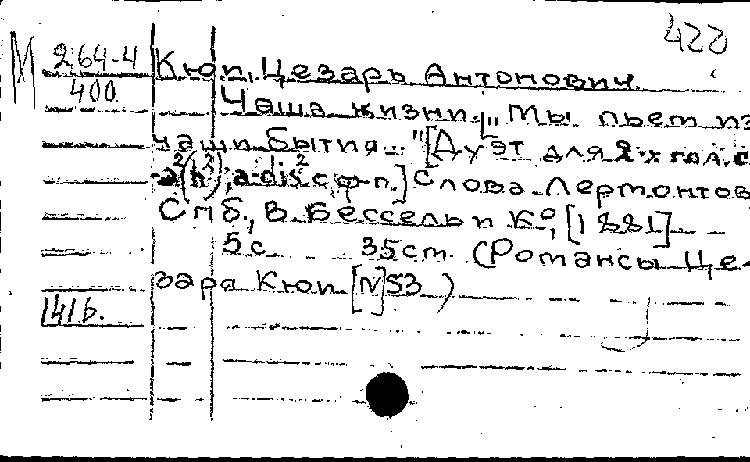 422
М 264-4
400
Кюи, Цезарь Антонович.
Чаша жизни. „Мы пьем из
чаши бытия..." [Дуэт для 2-х гол. с
a²(h²); a-dis² с ф-п.] Слова Лермонтов
Спб., В. Бессель и К°, [1881]
5 с. 35 см. (Романсы Це-
заря Кюи [№] 53)
141 б.